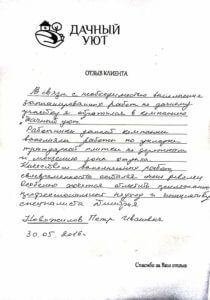 ДАЧНЫЙ
УЮТ
ОТЗЫВ КЛИЕНТА
В связи с необходимостью выполнения
запланированных работ по дачному
участку я обратился в компанию
"Дачный уют".
Работники данной компании
выполняли работы по укладке
тротуарной плитки
и мощению зоны отдыха.
Качеством выполненных работ,
Особенно хочется отметить
профессиональный подход и
специалиста Дмитрия
Новожилов Петр Иванович
30.05.2016г.
Спасибо за Ваш отзыв